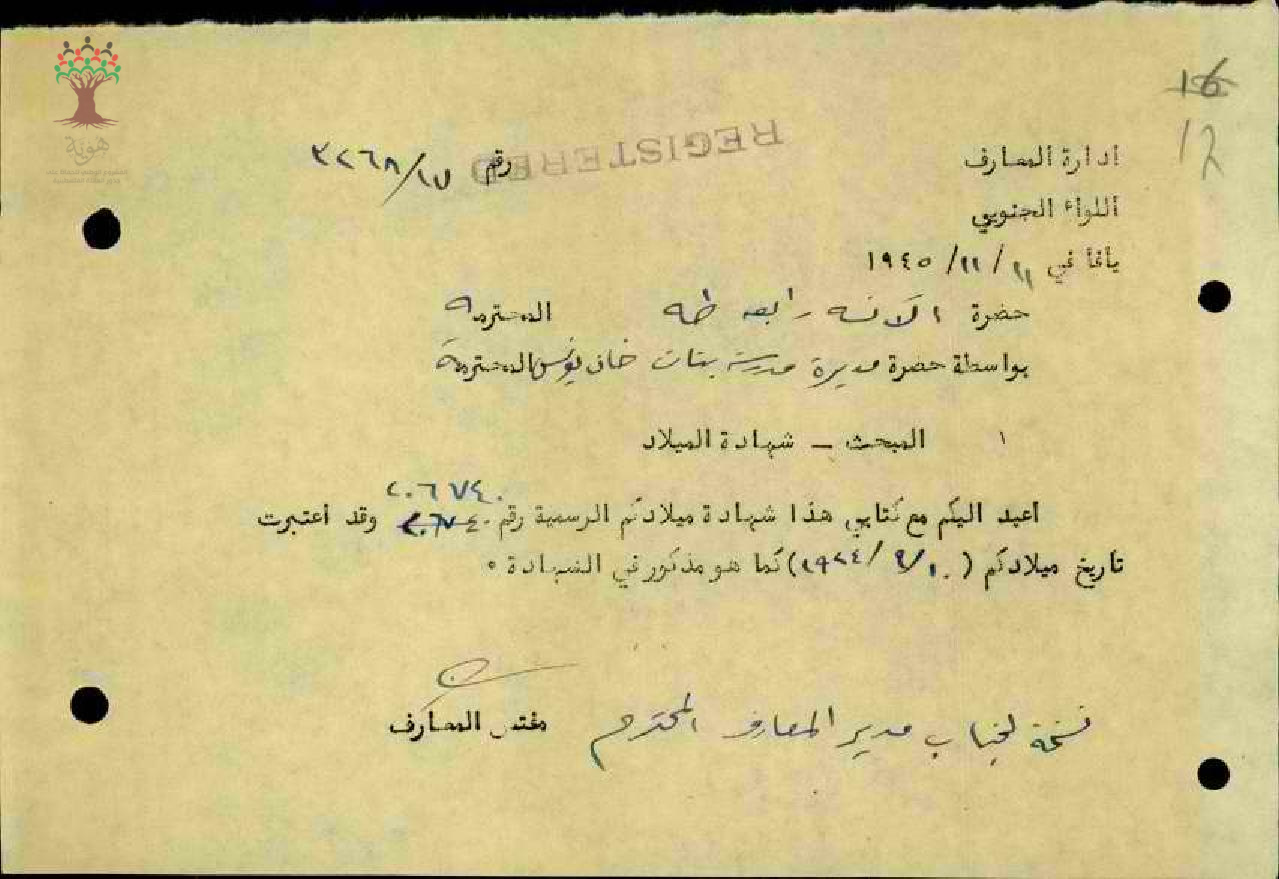 16
12
هوية
REGISTERED
ادارة المعارف
رقم ٣٢٦٨/١٧
اللواء الجنوبي
يافا في ١١/ ١١/ ١٩٤٥
حضرة الآنسه رابعه طه المحترمة
بواسطة حضرة مديرة مدرسة بنات خان يونس المحترمة
١ المبحث – شهادة الميلاد
٢٠٦٧٤٠
اعيد اليكم مع كتابي هذا شهادة ميلادكم الرسمية رقم وقد اعتبرت
تاريخ ميلادكم (١٠/ ٩/ ١٩٢٤) كما هو مذكور في الشهادة ٠
مفتش المعارف
نسخة لجناب مدير المعارف المحترم